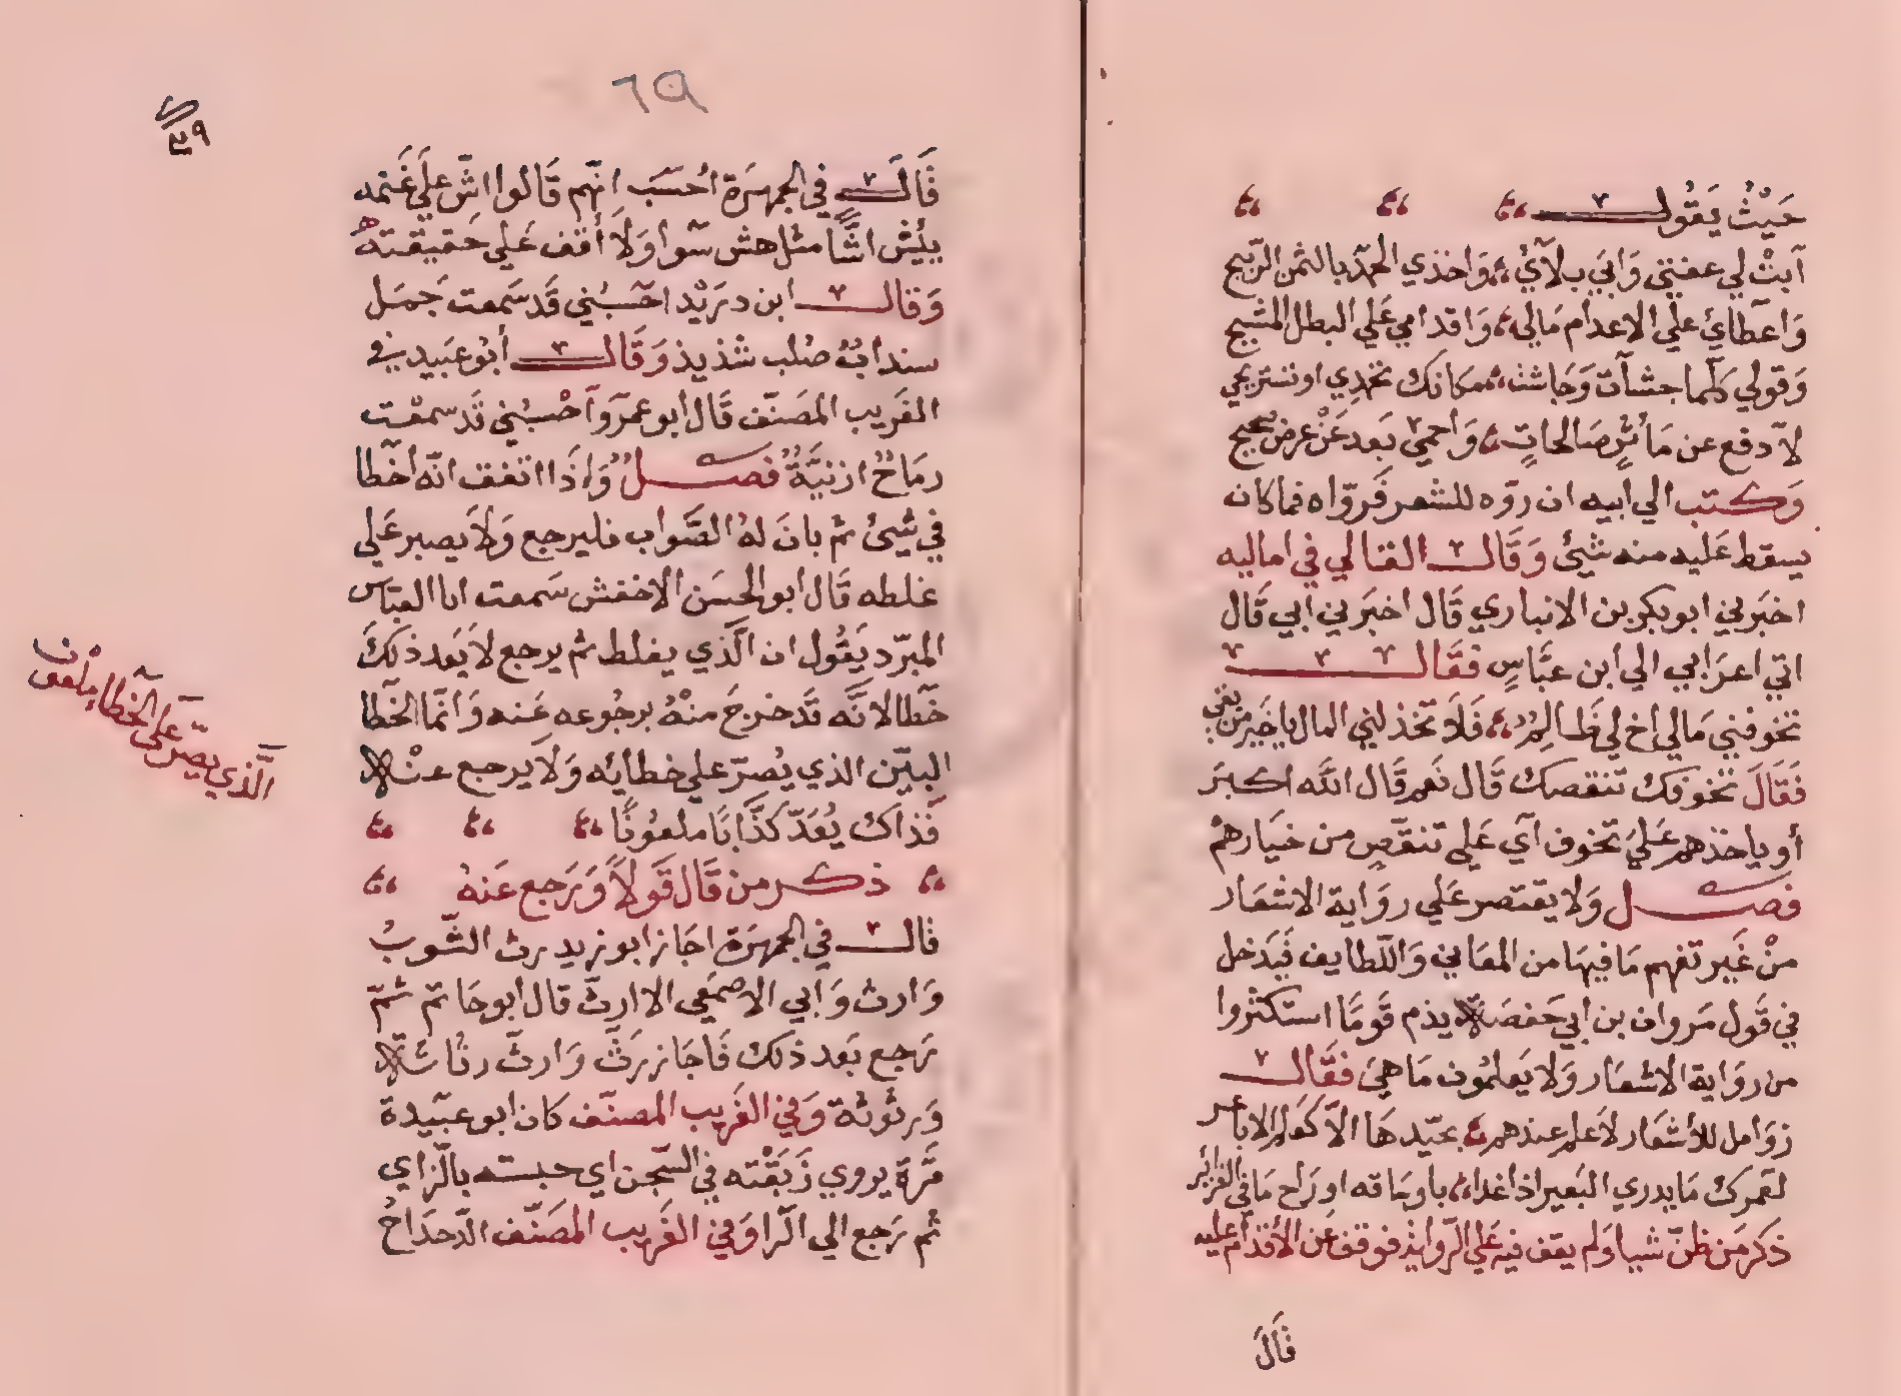 حَيْثُ يَقُولُ
أبتْ لي عفتي وَابَي بلآئِ وَاخذي الحمدَ بالثمن الرّبيح
وَاعطائ علي الاعدام مَالي وَاقدامي عَلي البطل المشيح
وَقولي كلّما جشأت وَجَاشت مكانك تحمدي اوتستريحي
لآدفع عن مَأثرٍ صَالحاتٍ وَأحمي بَعد عَنْ عرض صحيح
وَكتب الي ابيه ان روّه للشعر فَروّاه فما كان
يسقط عَليه منه شيئ وَقَال القالي في اماليه
اخبَرني ابوبكر بن الانباري قَال اخبَرني ابي قَال
اتي اعرَابي الي ابن عبَّاسٍ فقَال
تخوفني مَالي اخ لي ظَالِمٌ فَلا تخذلني المال ياخَير من بقي
فَقَالَ تخوفك تنقصك قَال نَعم قَال الله اكبَر
أو ياخذهم عَليَ تخوف آي عَلي تنقّصٍ من خيَارهمْ
فصل وَلا يقتصر عَلي روَاية الاشعَار
منْ غَير تفهم مَا فيهَا من المعَاني وَاللّطايف فيَدخل
في قَول مَروان بن ابي حَفصَة يذم قَومًا استكثروا
من روَاية الاشعَار وَلا يَعلمُون مَا هيَ فقَال
زوَامل للأشعَار لاَعلم عندهم بجيّدهَا الاّ كَعلم الاباعر
لعَمرك مَا يدري البَعير اذا غدا باوسَاقه اورَاح مَا في الغرائر
ذكرمَن ظنّ شيا وَلم يقف فيه عَلي الرّواية فوقف عَن الاقدَام عَليه
قَالَ
٦٩
٣٩
قَال في الجمهرَة احسَب انّهم قَالوا اشّ علي غَنمه
يئِشّ اشًّا مثل هش سَوا وَلاَ أقف عَلي حَقيقته
وَقال ابن درَيْد احسَبُني قَد سَمعت جَمَل
سندابٌ صُلب شديد وَقَال أبوعبَيد في
الغَريب المصَنّف قَال أبوعمرو أحْسبُني قَد سمعْت
رمَاحٌ ازنيَّةٌ فصل وَاذَا اتفق انّه اخطا
في شيئ ثم بانَ لهُ الصَّواب فليرجع وَلاَيصبر عَلي
غلطه قَال ابو الحسَن الاخفش سَمعت ابا العبّاس
المبرّد يَقُول ان الَّذي يغلط ثم يرجع لاَيَعد ذلكَ
خَطَا لانَّه قَد خرَج منْهُ برجُوعه عَنه وَانّما الخطا
البيّن الذي يُصرّ علي خطائه وَلاَ يرجع عنْه
فَذاك يُعَدّ كذَّابًا ملعُونًا
ذكر من قَال قَولاً وَرَجع عَنهُ
قال في الجمهرَة اجَاز ابوزيد رث الثّوبُ
وَارث وَابي الاصمَعي الا ارثّ قال أبوحَاتم ثمّ
رَجع بَعد ذلك فَاجَاز رَثّ وَارثّ رثَاثَة
وَرثوثة وَفي الغَريب المصنّف كان ابوعبَيدة
مَرّة يروي زَبَقْته في السّجن اي حبسته بالزّاي
ثم رَجع الي الرّا وَفي الغَريب المصَنّف الدّحدَاحُ
الَّذي يصرّ عَلي الخطا ملعون